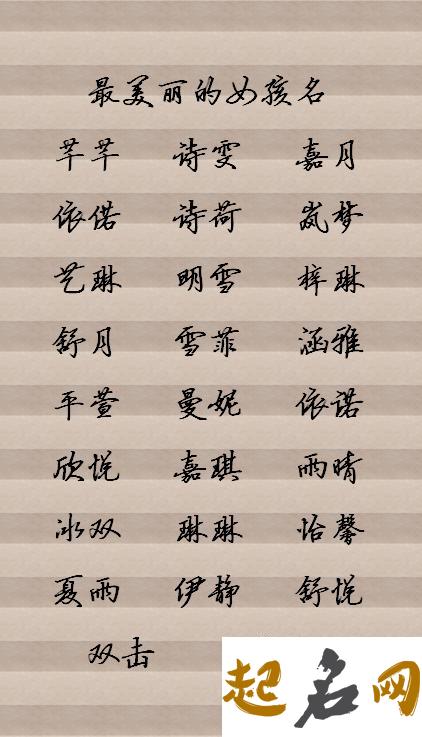 最美丽的女孩名
芊芊 诗雯 嘉月
依偌 诗荷 岚梦
艺琳 明雪 梓琳
舒月 雪菲 涵雅
平萱 曼妮 依诺
欣悦 嘉琪 雨晴
冰双 琳琳 怡馨
夏雨 伊静 舒悦
双击
起名网